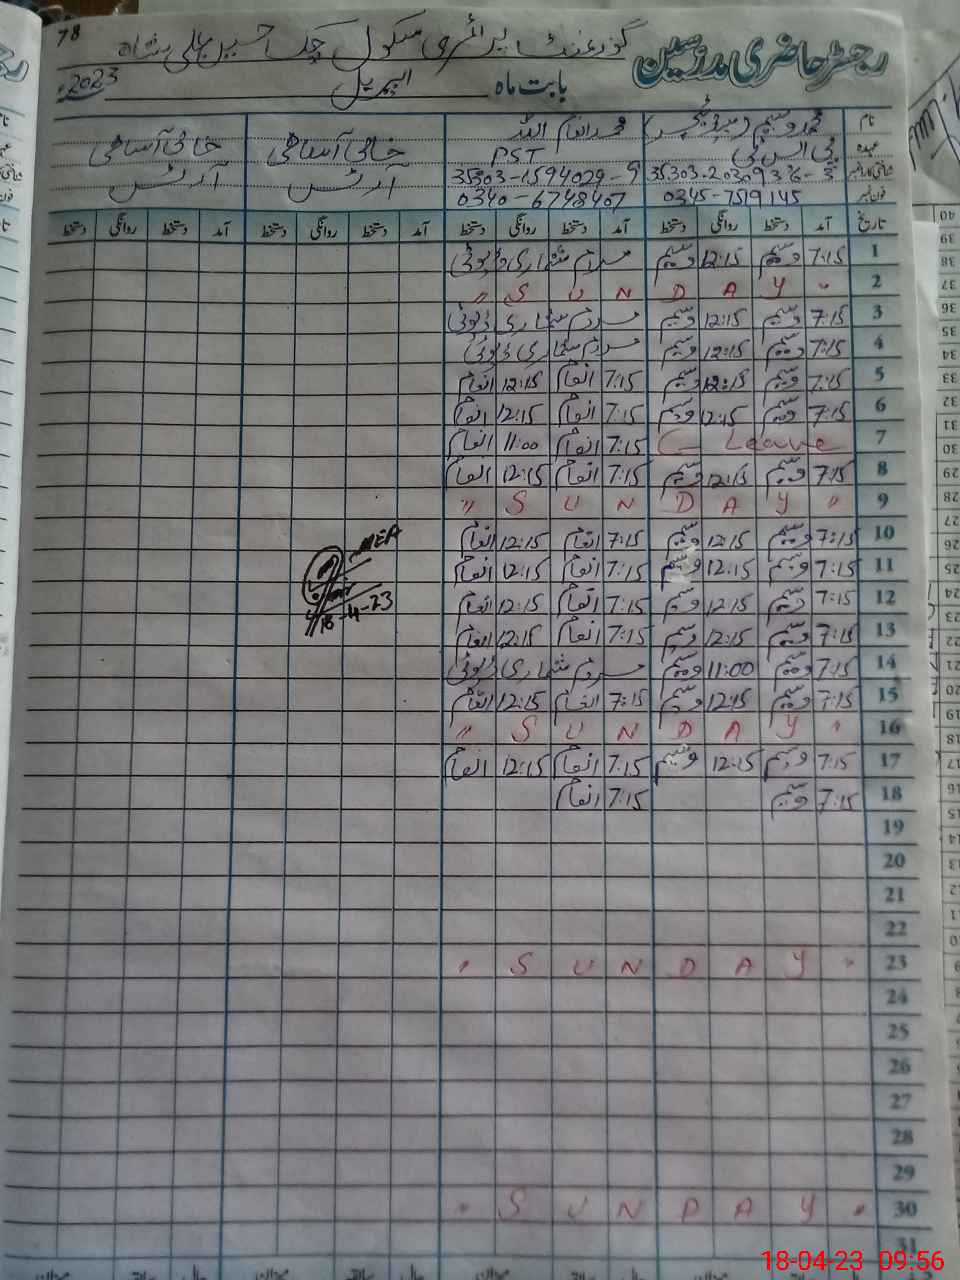 78
گورنمنٹ پرائمری سکول چک حسین بہلی شاہ
رجسٹر حاضری مدرسین
بابت ماہ اپریل 2023ء
نام محمد وسیم (ہیڈ ٹیچر) محمد انعام اللہ خالی آسامی خالی آسامی
عہدہ پی ایس ٹی PST آرٹس آرٹس
شناختی کارڈ نمبر 35303-2030936-3 35303-1594029-9
فون نمبر 0345-7519145 0340-6748407
تاریخ آمد دستخط روانگی دستخط آمد دستخط روانگی دستخط آمد دستخط روانگی دستخط آمد دستخط روانگی دستخط
1 7:15 وسیم 12:15 وسیم مردم شماری ڈیوٹی
2 " S U N D A Y "
3 7:15 وسیم 12:15 وسیم مردم شماری ڈیوٹی
4 7:15 وسیم 12:15 وسیم مردم شماری ڈیوٹی
5 7:15 وسیم 12:15 وسیم 7:15 انعام 12:15 انعام
6 7:15 وسیم 12:15 وسیم 7:15 انعام 12:15 انعام
7 C- Leave 7:15 انعام 11:00 انعام
8 7:15 وسیم 12:15 وسیم 7:15 انعام 12:15 انعام
9 " S U N D A Y "
10 7:15 وسیم 12:15 وسیم 7:15 انعام 12:15 انعام
11 7:15 وسیم 12:15 وسیم 7:15 انعام 12:15 انعام
12 7:15 وسیم 12:15 وسیم 7:15 انعام 12:15 انعام
13 7:15 وسیم 12:15 وسیم 7:15 انعام 12:15 انعام
14 7:15 وسیم 11:00 وسیم مردم شماری ڈیوٹی
15 7:15 وسیم 12:15 وسیم 7:15 انعام 12:15 انعام
16 " S U N D A Y "
17 7:15 وسیم 12:15 وسیم 7:15 انعام 12:15 انعام
18 7:15 وسیم 7:15 انعام
19
20
21
22
23 " S U N D A Y "
24
25
26
27
28
29
30 " S U N D A Y "
31
MEA
18-4-23
18-04-23 09:56